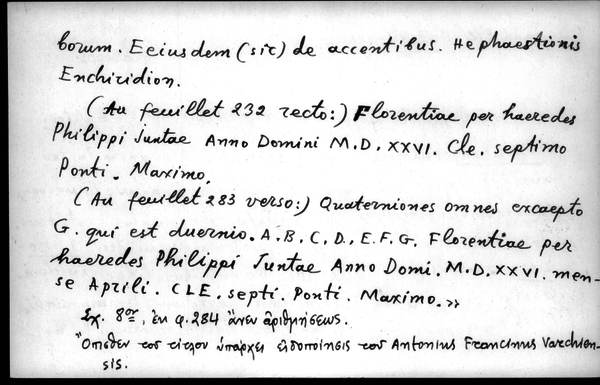 borum. Eeiusdem (sic) de accentibus. Hephaestionis
Enchiridion.
(Au feuillet 232 recto:) Florentiae per haeredes
Philippi Juntae Anno Domini M.D.XXVI. Cle. septimo
Ponti. Maximo.
(Au feuillet 283 verso:) Quaterniones omnes excaepto
G. qui est duernio. A.B.C.D.E.F.G. Florentiae per
haeredes Philippi Juntae Anno Domi. M.D.XXVI. men-
se Aprili. CLE. septi. Ponti. Maximo.»
Σχ. 8ον, ἐκ φ. 284 ἄνευ ἀριθμήσεως.
Ὄπισθεν τοῦ τίτλου ὑπάρχει εἰδοποίησις τοῦ Antonius Francinus Varchien-
sis.